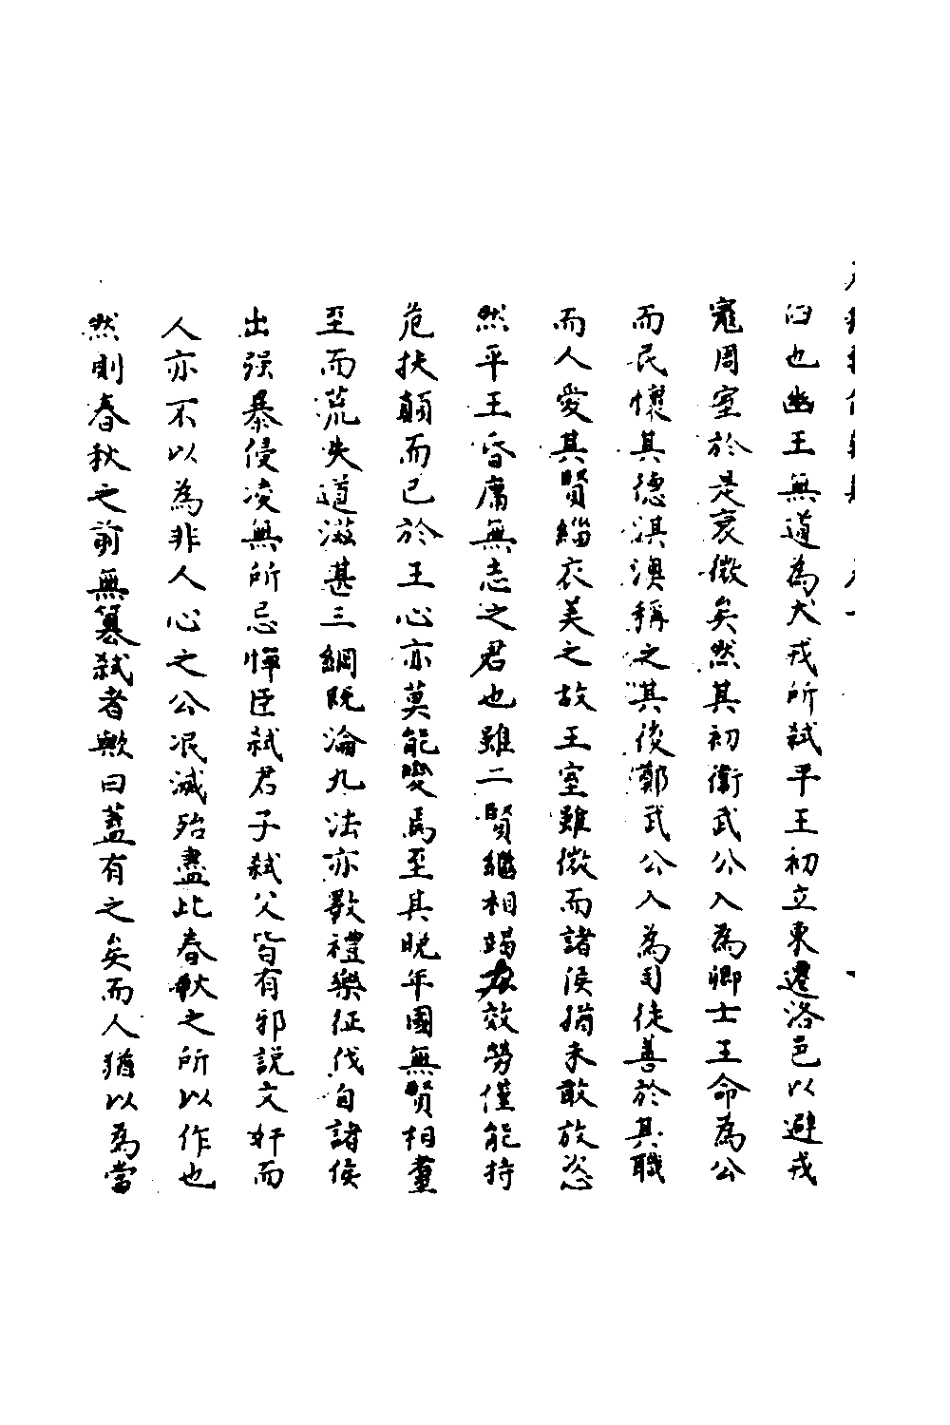 臼也幽王無道為犬戎所弑平王初立東遷洛邑以避戎
寇周室於是衰微矣然其初衛武公入為卿士王命為公
而民懷其德淇澳稱之其後鄭武公入為司徒善於其職
而人愛其賢緇衣美之故王室雖微而諸侯猶未敢放恣
然平王昏庸無志之君也雖二賢繼相竭力效勞僅能持
危扶顛而已於王心亦莫能變焉至其晚年國無賢相耄
至而荒失道滋甚三綱既淪九法亦斁禮樂征伐自諸侯
出强暴侵凌無所忌憚臣弑君子弑父皆有邪說文奸而
人亦不以為非人心之公泯滅殆盡此春秋之所以作也
然則春秋之前無篡弑者歟曰蓋有之矣而人猶以為當